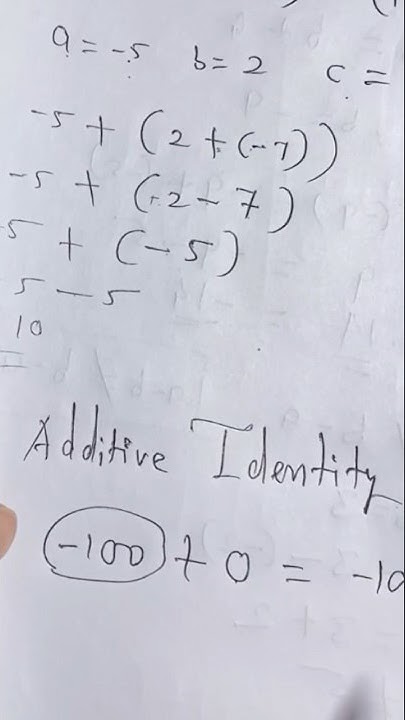 a = -5 b = 2 c =
-5 + (2 + (-7))
-5 + (2 - 7)
5 + (-5)
5 - 5
10
Additive Identity
-100 + 0 = -10